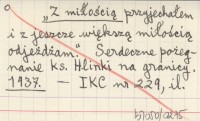 „Z miłością przyjechałem
i z jeszcze większą miłością
odjeżdżam." Serdeczne pożeg-
nanie ks. Hlinki na granicy.
1937. — IKC nr 229, il.